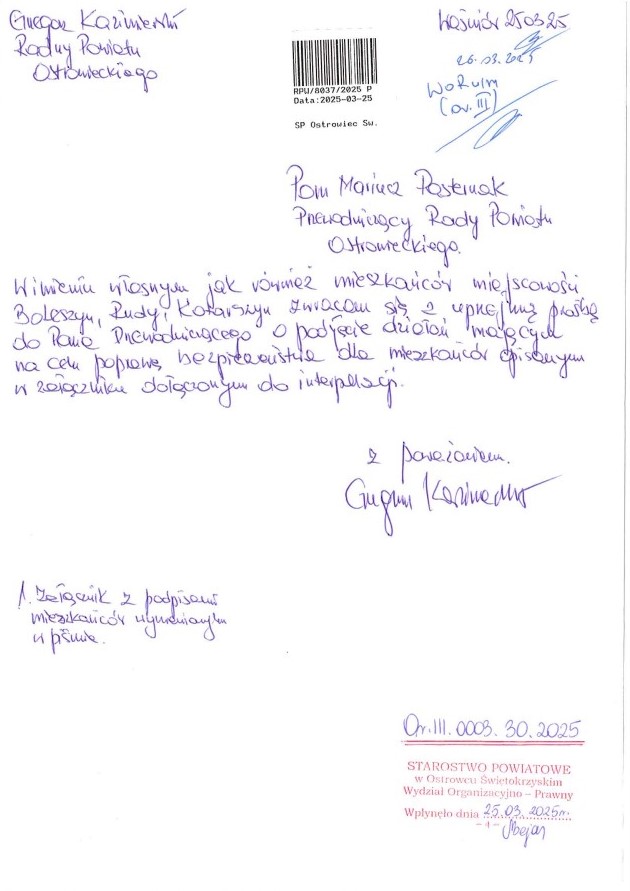 Grzegorz Kaźmierski
Radny Powiatu
Ostrowieckiego
Waśniów 25.03.25
RPW/8037/2025 P
Data:2025-03-25
SP Ostrowiec Sw.
26.03.2025
(or. III)
Pan Mariusz Pasternak
Przewodniczący Rady Powiatu
Ostrowieckiego.
W imieniu własnym jak również mieszkańców miejscowości
Boleszyn, Rudy, Kotarszyn zwracam się z uprzejmą prośbą
do Pana Przewodniczącego o podjęcie działań mających
na celu poprawę bezpieczeństwa dla mieszkańców opisanym
w załączniku dołączonym do interpelacji.
z poważaniem.
Grzegorz Kaźmierski
1. Załącznik z podpisami
mieszkańców wymienionym
w piśmie.
Or.III.0003.30.2025
STAROSTWO POWIATOWE
w Ostrowcu Świętokrzyskim
Wydział Organizacyjno – Prawny
Wpłynęło dnia 25.03.2025r.
- 4 -